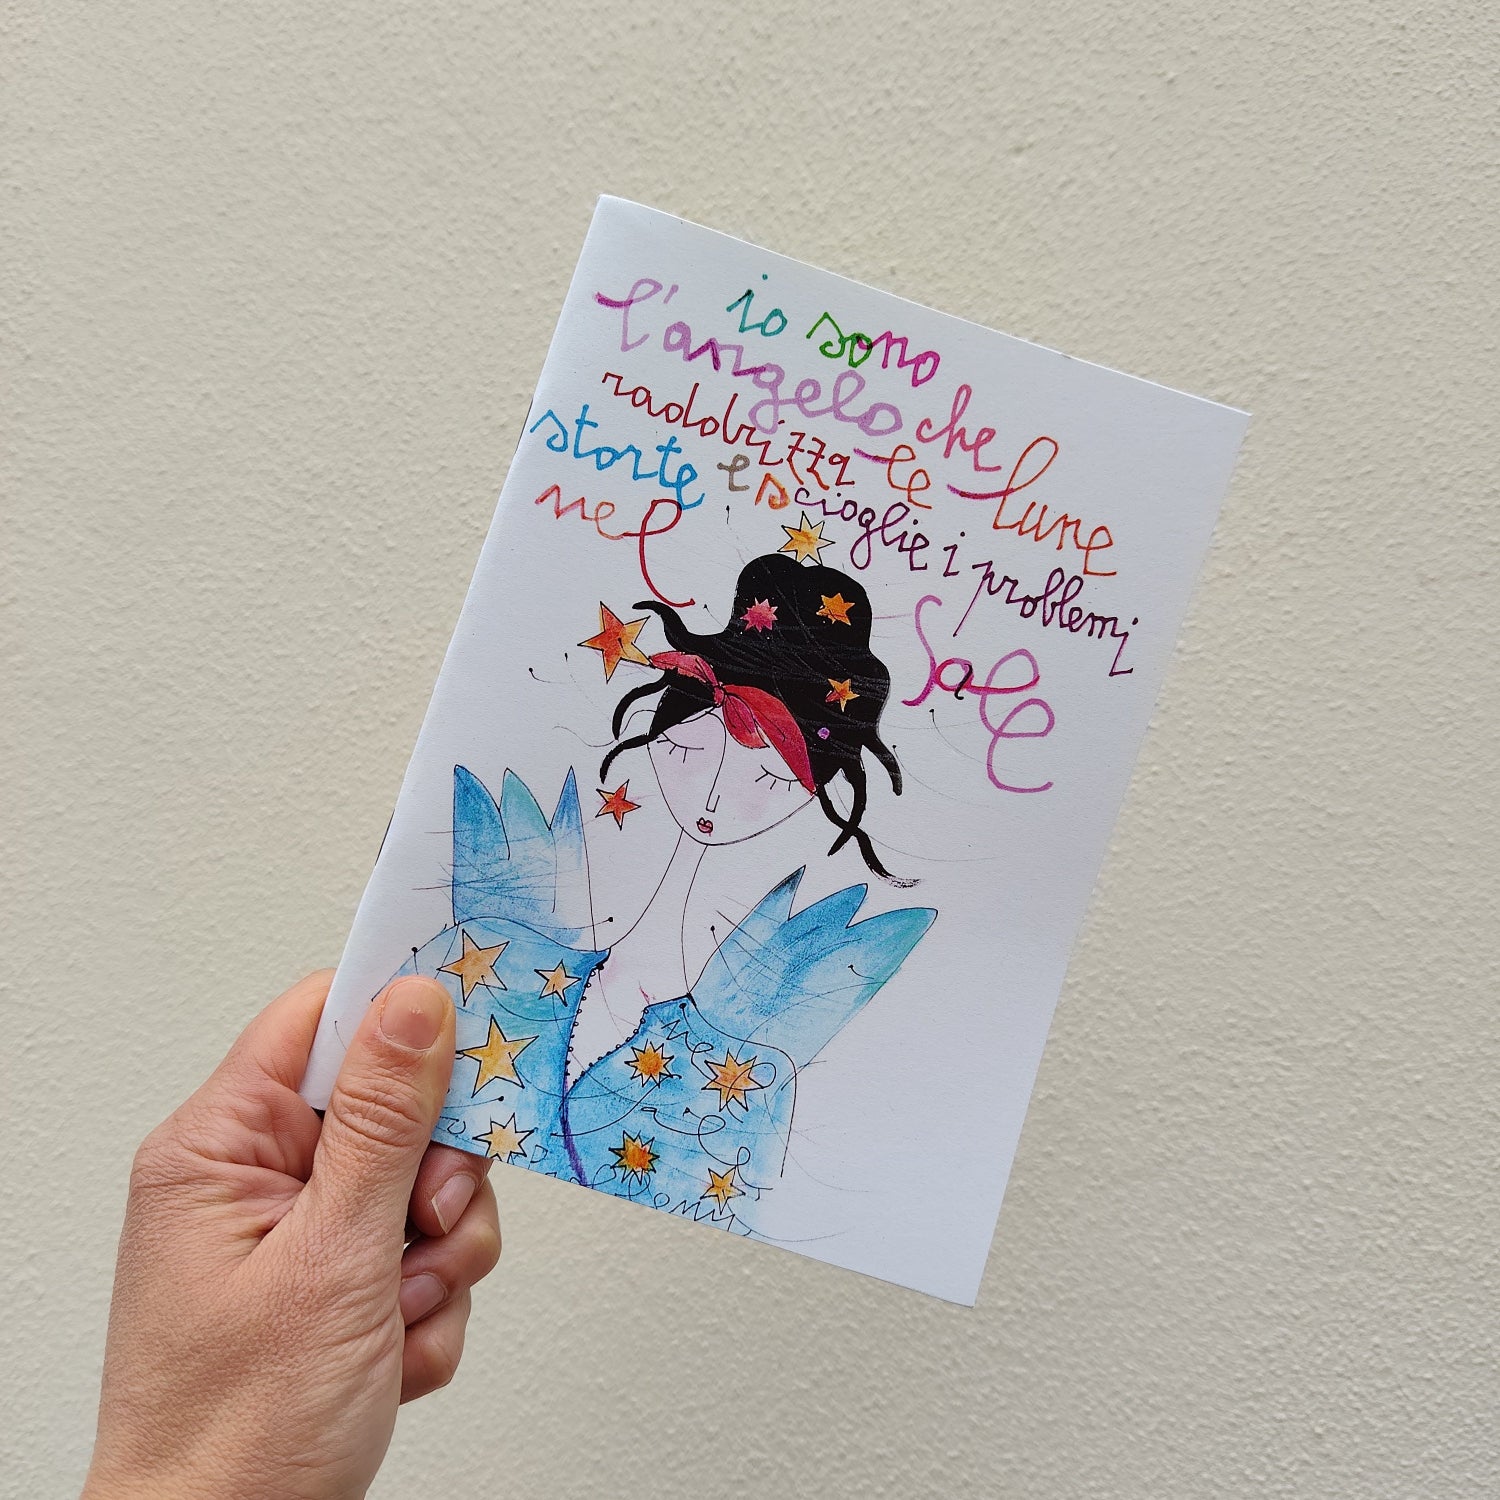 io sono
l'angelo che
raddrizza le lune
storte e scioglie i problemi
nel Sale
nel